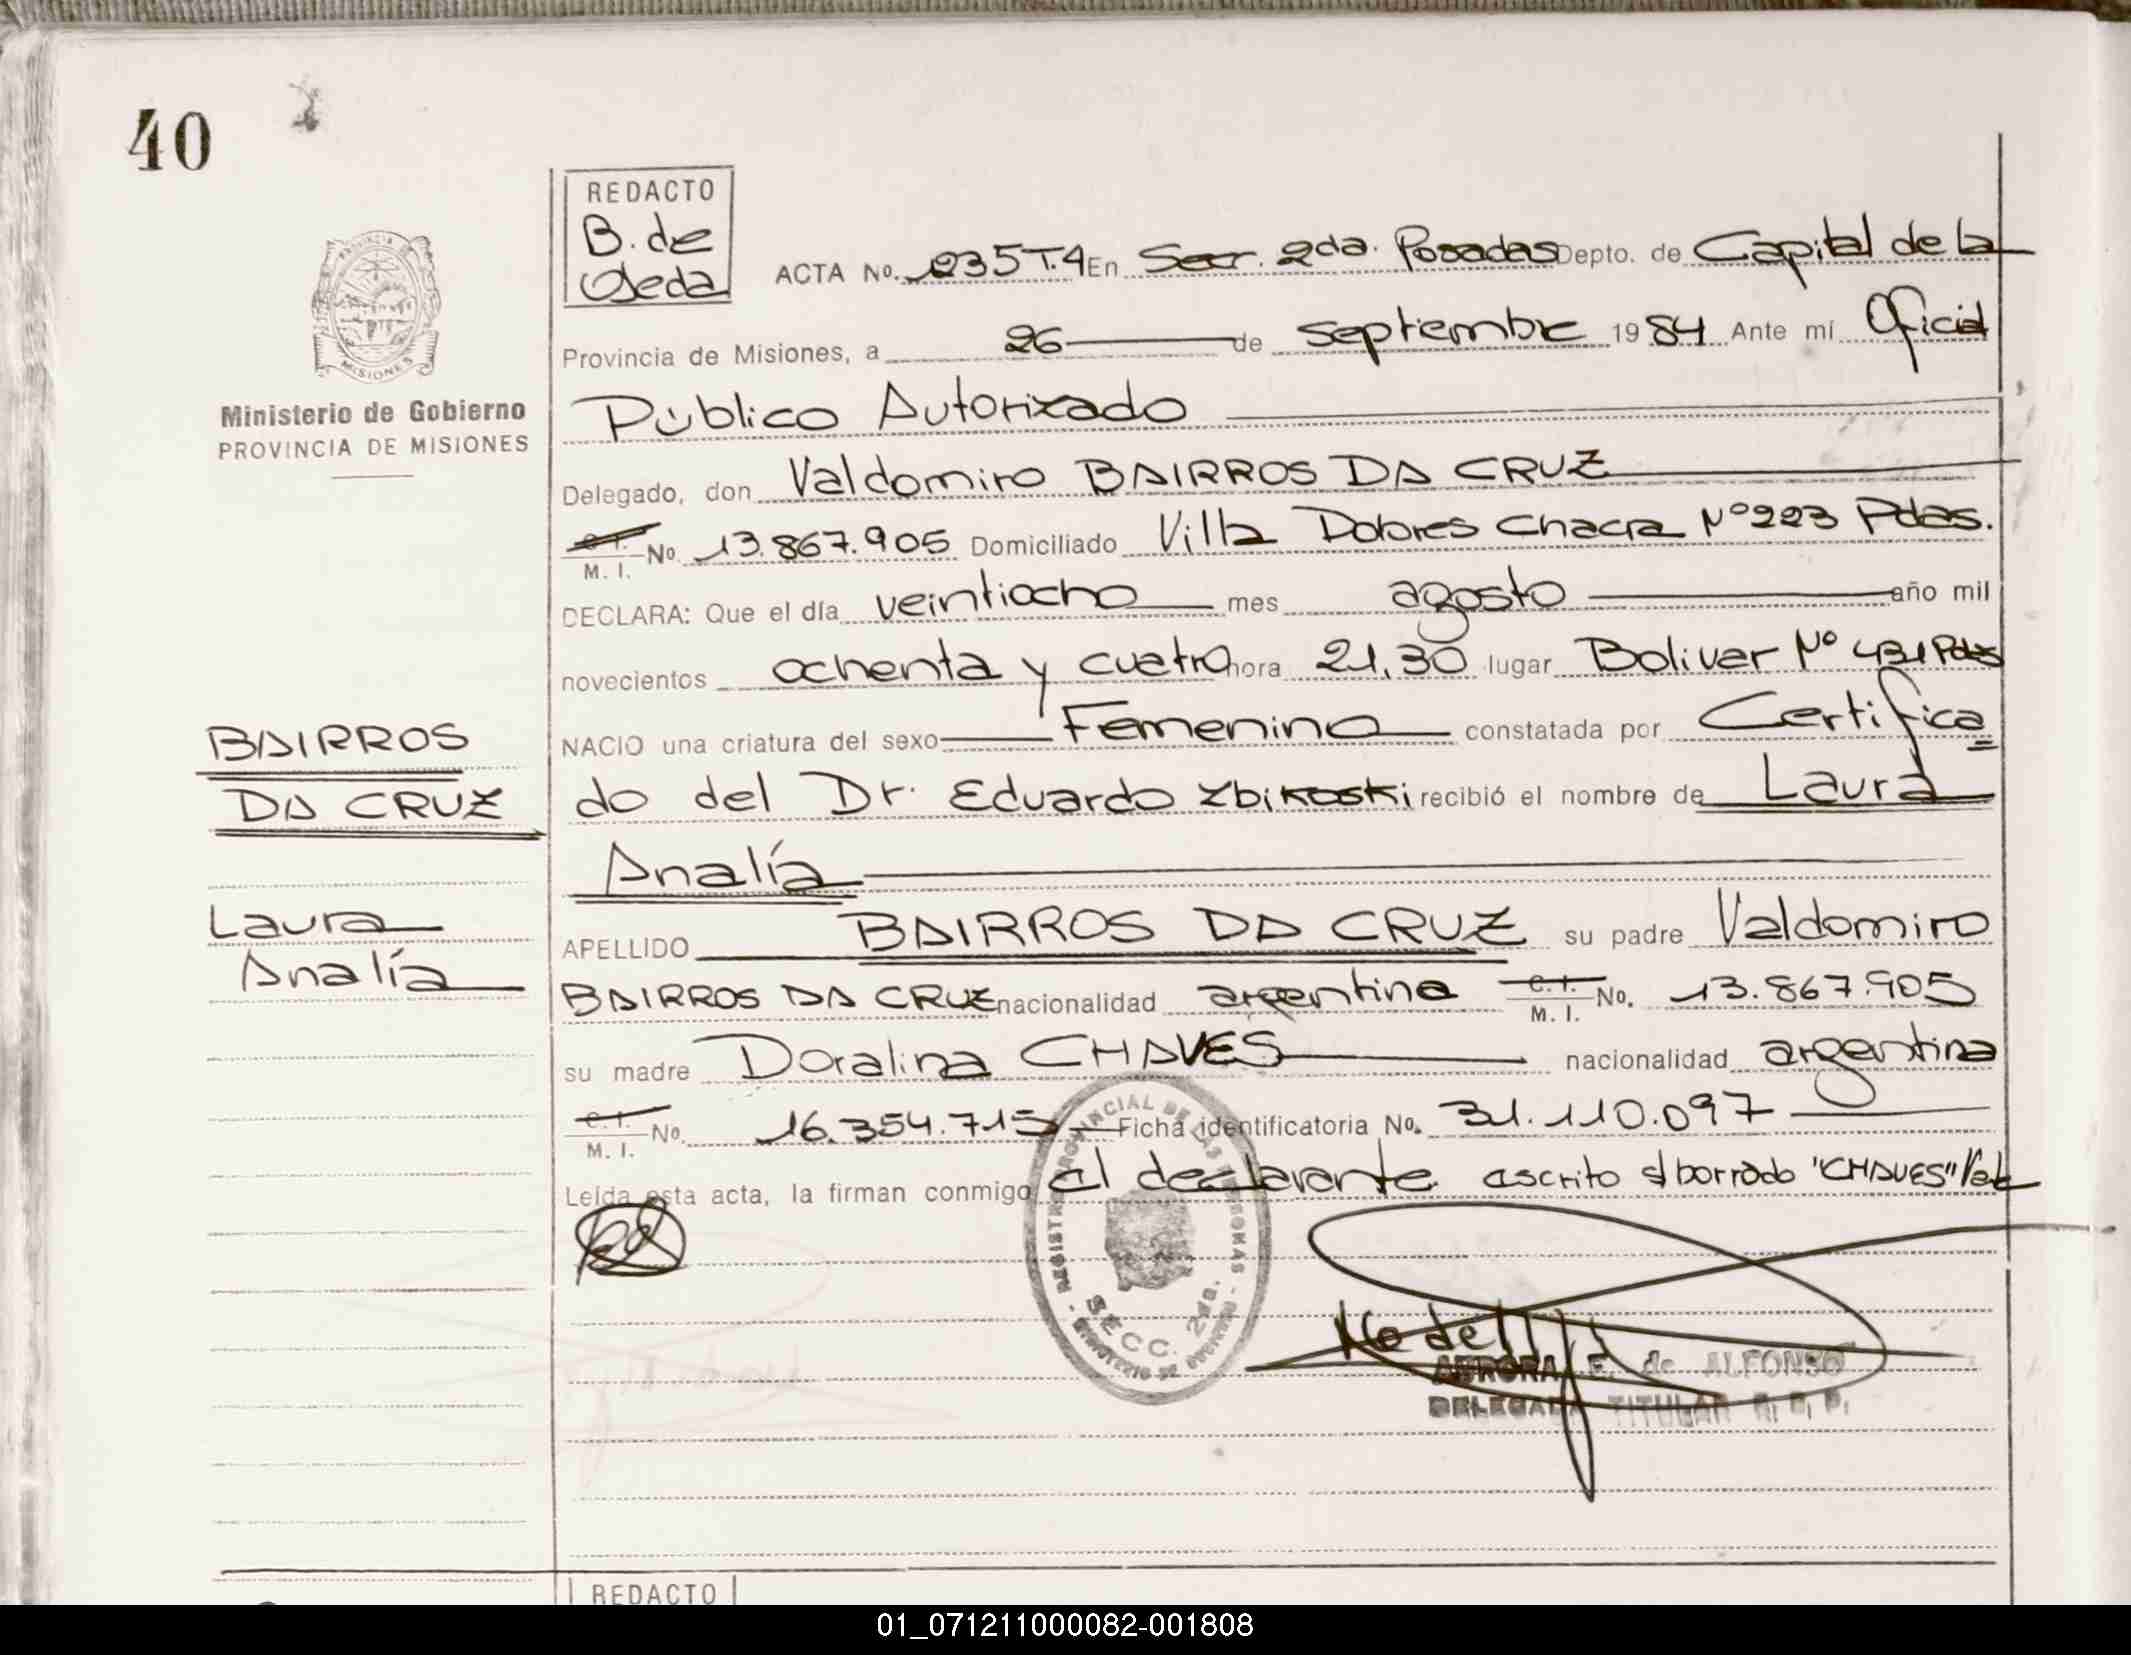 40
REDACTO
B. de
Ojeda
ACTA No. 235 T.4 En Secr. 2da. Posadas Depto. de Capital de la
Provincia de Misiones, a 26 de septiembre 1984 Ante mí Oficial
Público Autorizado
Delegado, don Valdomiro BAIRROS DA CRUZ
C. I.
M. I. No. 13.867.905 Domiciliado Villa Dolores Chacra Nº 223 Pdas.
DECLARA: Que el día veintiocho mes agosto año mil
novecientos ochenta y cuatro hora 21,30 lugar Bolivar Nº 431 Pdas
NACIO una criatura del sexo Femenino constatada por Certifica
do del Dr. Eduardo Zbikoski recibió el nombre de Laura
Analía
APELLIDO BAIRROS DA CRUZ su padre Valdomiro
BAIRROS DA CRUZ nacionalidad argentina C. I.
M. I. No. 13.867.905
su madre Doralina CHAVES nacionalidad argentina
C. I.
M. I. No. 16.354.715 Ficha identificatoria No. 31.110.097
Leída esta acta, la firman conmigo el declarante. escrito s/borrado "CHAVES" Vale
PROVINCIA DE
MISIONES
Ministerio de Gobierno
PROVINCIA DE MISIONES
BAIRROS
DA CRUZ
Laura
Analía
REGISTRO PROVINCIAL DE LAS PERSONAS
SECC. 2da.
AURORA E. de ALFONSO
DELEGADA TITULAR R. P. P.
REDACTO
01_071211000082-001808